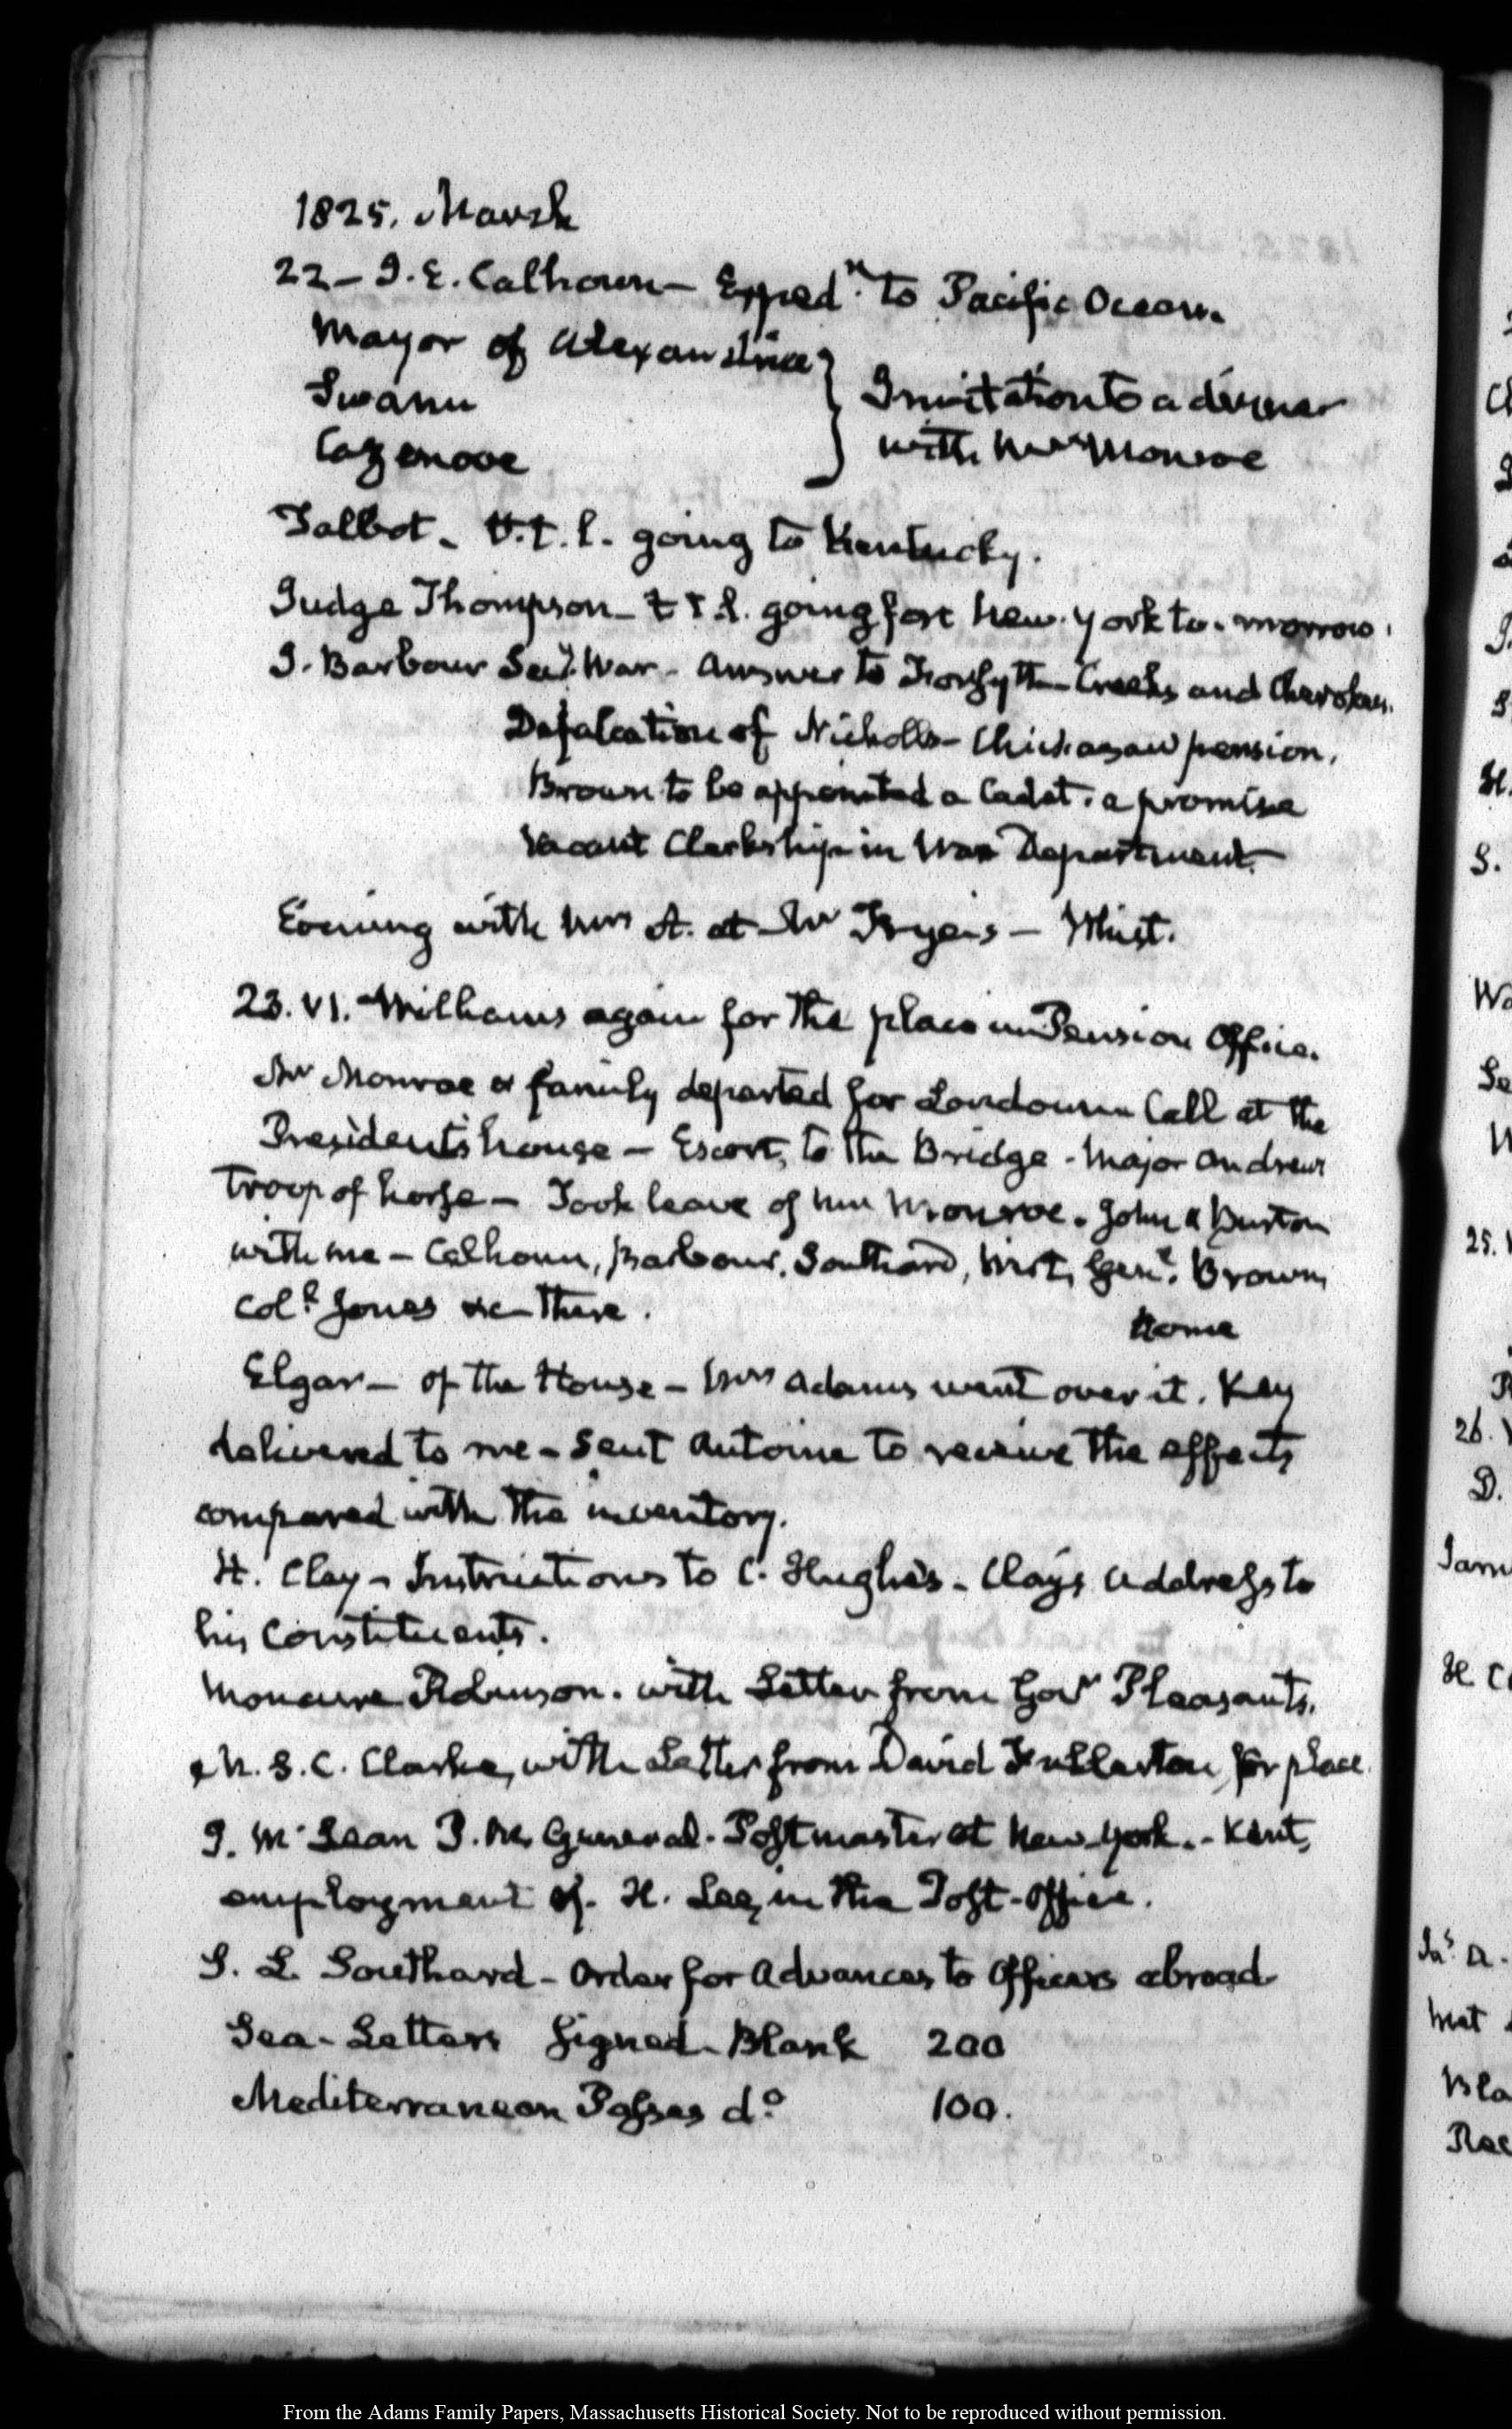 1825. March
22 – J. E. Calhoun – Expedn. to Pacific Ocean.
Mayor of Alexandria
Swann
Cazenove
Invitation to a dinner
with Mr Monroe
Talbot – t.t.l. going to Kentucky.
Judge Thompson – t t l. going for New-York to-morrow.
J. Barbour Secy. War – Answer to Forsyth – Creeks and Cherokees.
Defalcation of Nicholls – Chickasaw pension.
Brown to be appointed a Cadet. a promise
Vacant Clerkship in War Department.
Evening with Mrs A. at Mr Frye's – Whist.
23. VI. Williams again for the place in Pension Office.
Mr Monroe & family departed for Loudoun. Call at the
President's house – Escort, to the Bridge – Major Andrews
troop of horse – Took leave of Mr Monroe. John &
with me – Calhoun, Barbour, Southard, Wirt, Genl. Brown,
Coll. Jones &c – there.
home
Elgar – of the House – Mrs Adams went over it. Key
delivered to me – Sent Antoine to receive the effects
compared with the inventory.
H. Clay – Instructions to C. Hughes – Clay's Address to
his Constituents.
Moncure Robinson. with Letter from Govr Pleasants.
M. S. C. Clarke, with Letter from David Fullerton, for place.
J. McLean P. M. General. Postmaster at New-York. – Kent,
employment of H. Lee, in the Post-Office.
S. L. Southard – Order for Advances to Officers abroad
Sea-Letters Signed – Blank 200
Mediterranean Passes do. 100.
25.
26.
D.
From the Adams Family Papers, Massachusetts Historical Society. Not to be reproduced without permission.